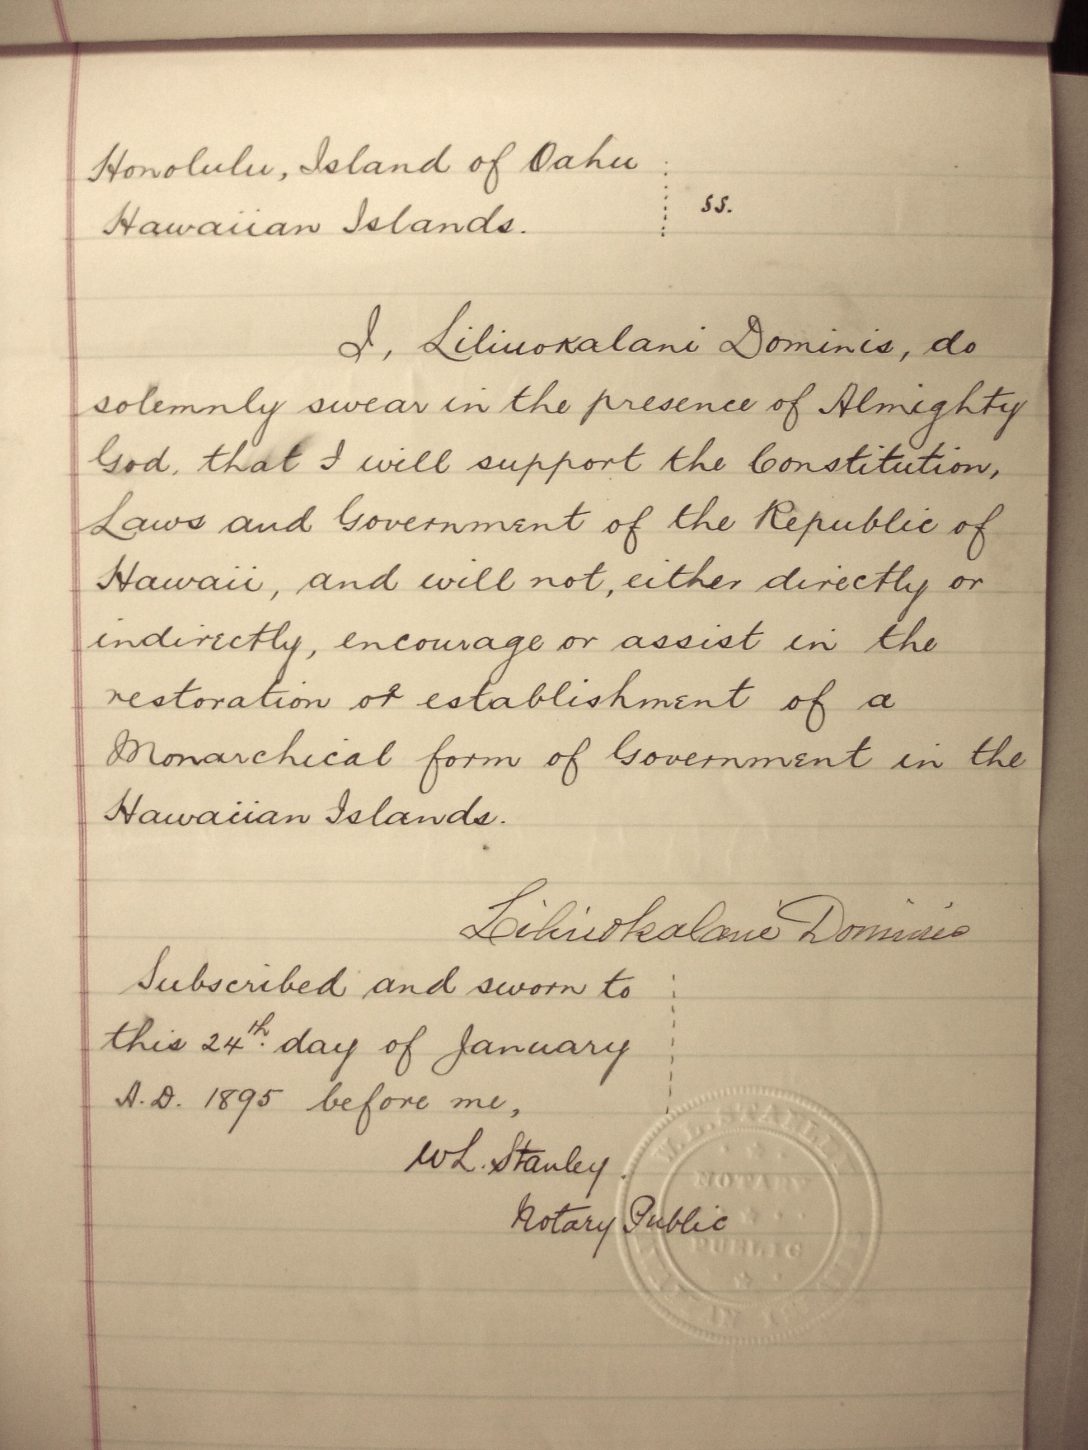 Honolulu, Island of Oahu
Hawaiian Islands. ss.
I, Liliuokalani Dominis, do
solemnly swear in the presence of Almighty
God, that I will support the Constitution,
Laws and Government of the Republic of
Hawaii, and will not, either directly or
indirectly, encourage or assist in the
restoration or establishment of a
Monarchical form of Government in the
Hawaiian Islands.
Liliuokalani Dominis
Subscribed and sworn to
this 24th. day of January
A.D. 1895 before me,
W.L. Stanley.
Notary Public
W.L. STANLEY
NOTARY
PUBLIC